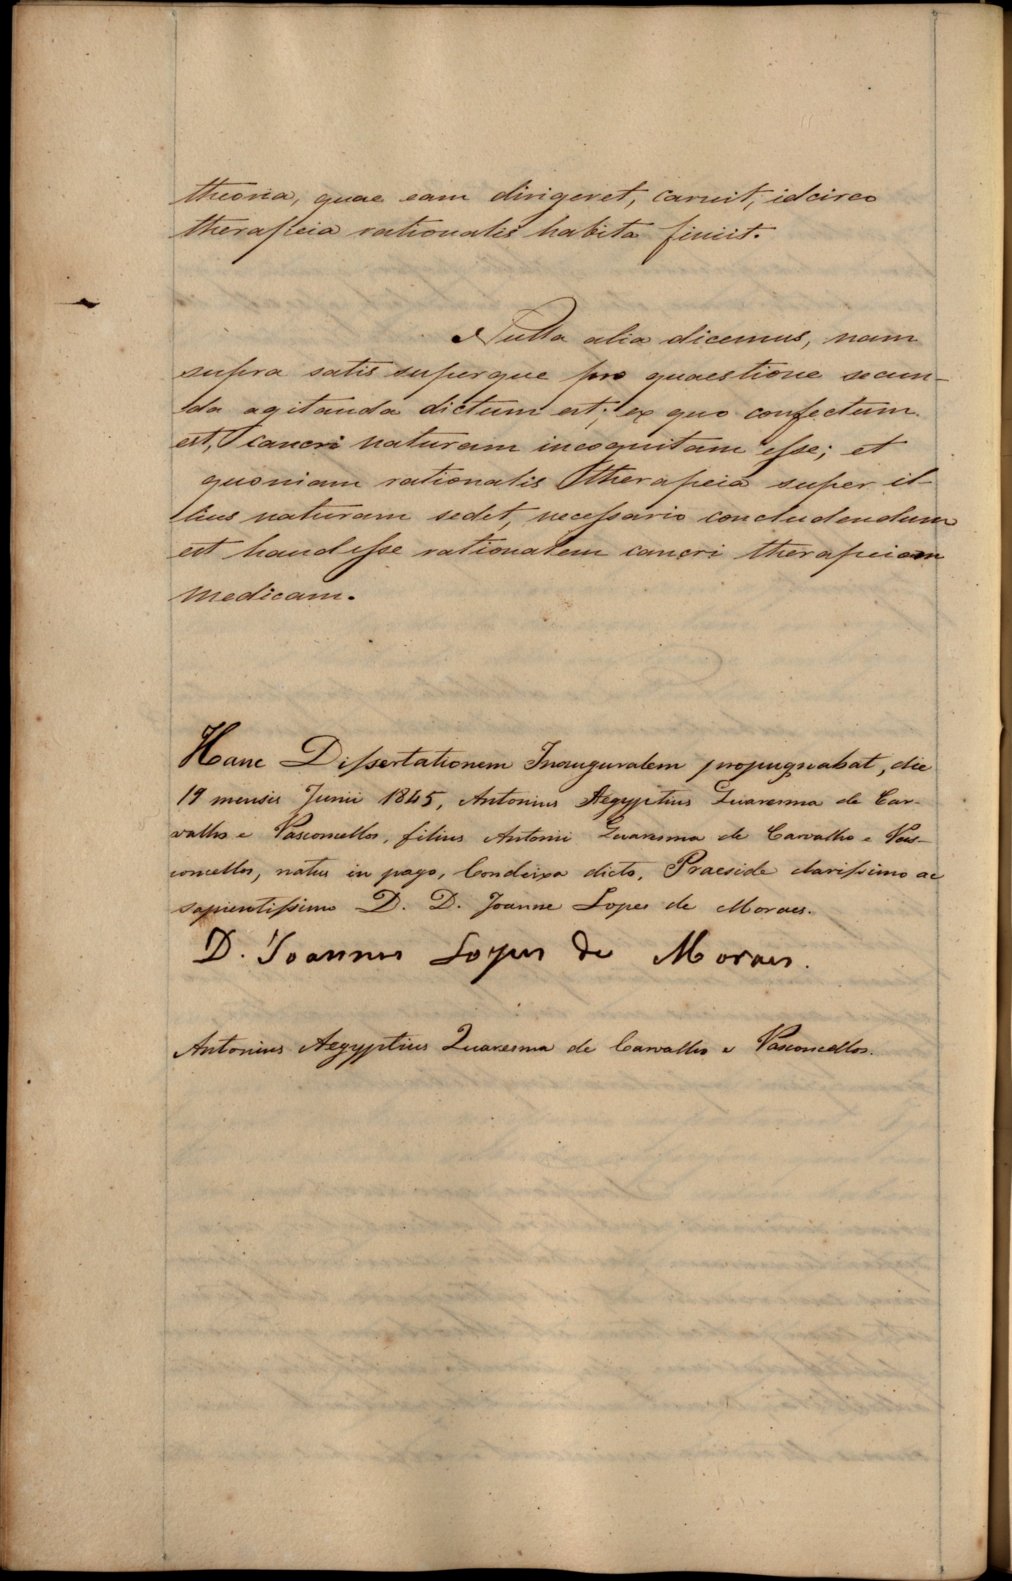 theoria, quae eam dirigeret, caruit, idcirco
therapeia rationalis habita finiit.
Nulla alia dicemus, nam
supra satis superque pro quaestione secun-
da agitanda dictum est; ex quo confectum
est, cancri naturam incognitam esse; et
quoniam rationalis therapeia super il-
lius naturam sedet, necessario concludendum
est haud esse rationalem cancri therapeiam
medicam.
Hanc Dissertationem Inauguralem propugnabat, die
19 mensis Junii 1845, Antonius Aegyptius Quaresma de Car-
valho e Vasconcellos, filius Antonii Quaresma de Carvalho e Vas-
concellos, natus in pago, Condeixa dicto, Praeside clarissimo ac
sapientissimo D. D. Joanne Lopes de Moraes.
D. Joannes Lopes de Moraes.
Antonius Aegyptius Quaresma de Carvalho e Vasconcellos.